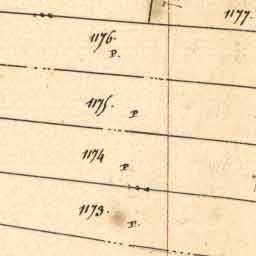 1177.
1176.
P.
1175.
P
1174
P
1173.
P.